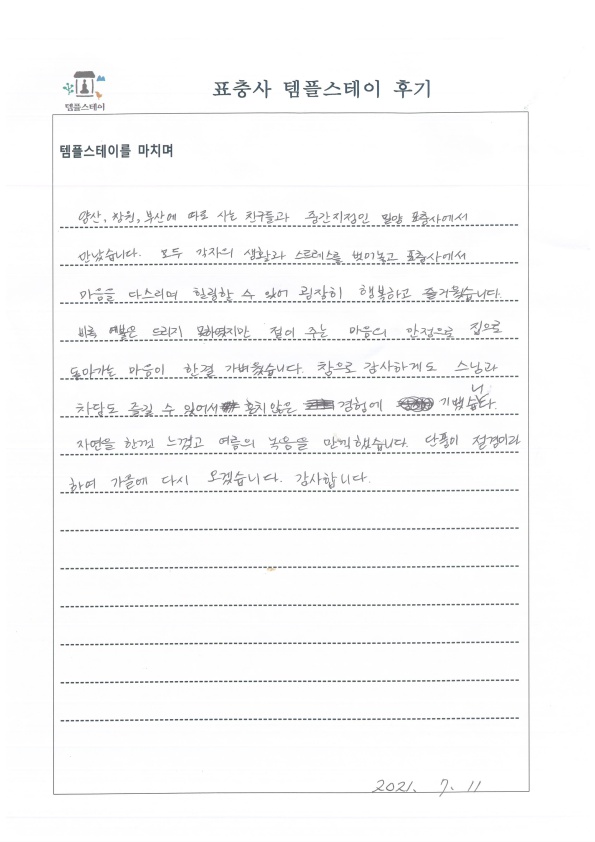 템플스테이
표충사 템플스테이 후기
템플스테이를 마치며
양산, 창원, 부산에 따로 사는 친구들과 중간지점인 밀양 표충사에서
만났습니다. 모두 각자의 생활과 스트레스를 벗어놓고 표충사에서
마음을 다스리며 힐링할 수 있어 굉장히 행복하고 즐거웠습니다.
비록 예불은 드리지 못하였지만 절이 주는 마음의 안정으로 집으로
돌아가는 마음이 한결 가벼웠습니다. 참으로 감사하게도 스님과
차담도 즐길 수 있어서 흔치않은 경험에 기뻤습니다.
자연을 한껏 느꼈고 여름의 녹음을 만끽했습니다. 단풍이 절경이라
하여 가을에 다시 오겠습니다. 감사합니다.
2021. 7. 11